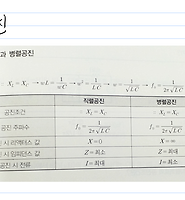 과 병렬공진
X_L = X_C → ωL = 1/ωC → ω² = 1/LC → ω = 1/√LC → f_o = 1/2π√LC
직렬공진 병렬공진
공진조건 X_L = X_C X_L = X_C
공진 주파수 f_o = 1/2π√LC f_o = 1/2π√LC
진 시 리액턴스 값 X = 0 X = ∞
진 시 임피던스 값 Z = 최소 Z = 최대
공진 시 전류 I = 최대 I = 최소